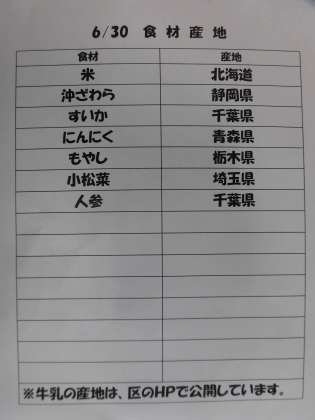 6/30 食材産地
食材 産地
米 北海道
沖ざわら 静岡県
すいか 千葉県
にんにく 青森県
もやし 栃木県
小松菜 埼玉県
人参 千葉県
※牛乳の産地は、区のHPで公開しています。